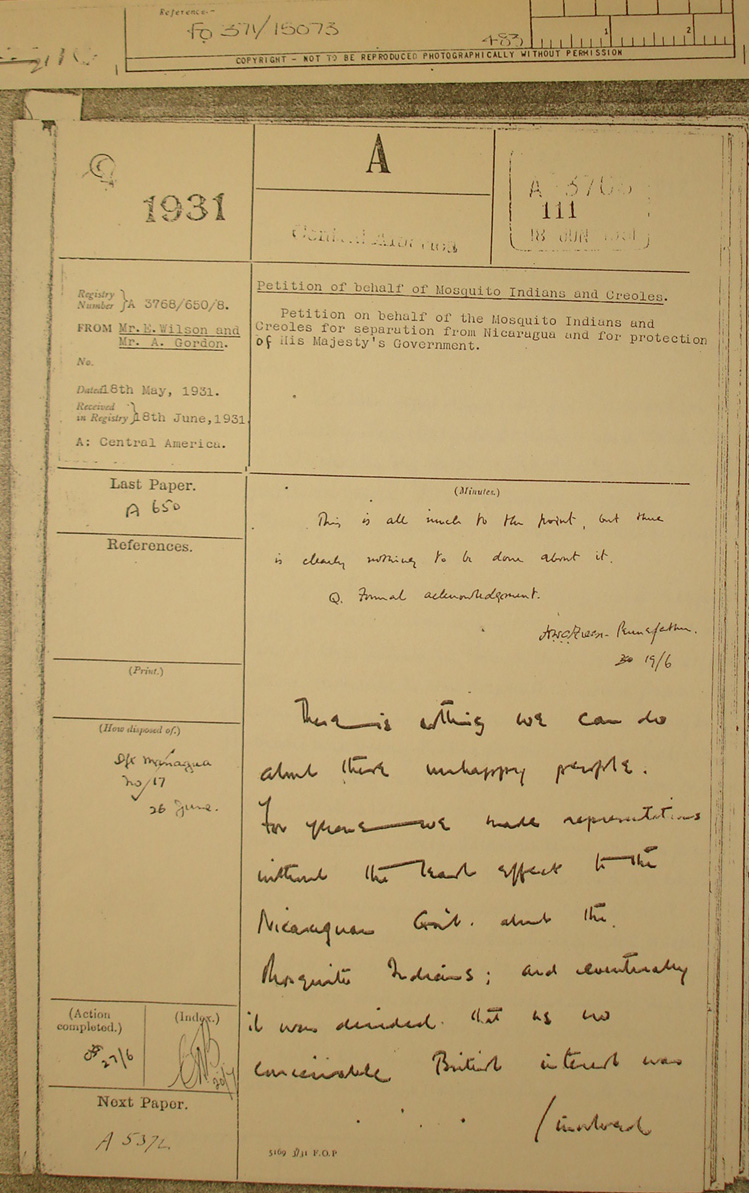 Reference:-
FO 371/15073
483
1
2
COPYRIGHT - NOT TO BE REPRODUCED PHOTOGRAPHICALLY WITHOUT PERMISSION
1931
A
Central America
A 3768
111
18 JUN 1931
Registry Number } A 3768/650/8.
FROM Mr.E.Wilson and
Mr. A. Gordon.
No.
Dated 18th May, 1931.
Received in Registry } 18th June,1931
A: Central America.
Petition of behalf of Mosquito Indians and Creoles.
Petition on behalf of the Mosquito Indians and
Creoles for separation from Nicaragua and for protection
of His Majesty's Government.
Last Paper.
A 650
References.
(Print.)
(How disposed of.)
Managua
No 17
26 June.
(Action completed.)
27/6
(Index.)
Next Paper.
(Minutes.)
This is all much to the point, but there
is clearly nothing to be done about it.
Q. Formal acknowledgement.
19/6
There is nothing we can do
about these unhappy people.
For years we made representations
without the least effect to the
Nicaraguan Govt. about the
Mosquito Indians; and eventually
it was decided that as no
conceivable British interest was
/involved
F.O.P